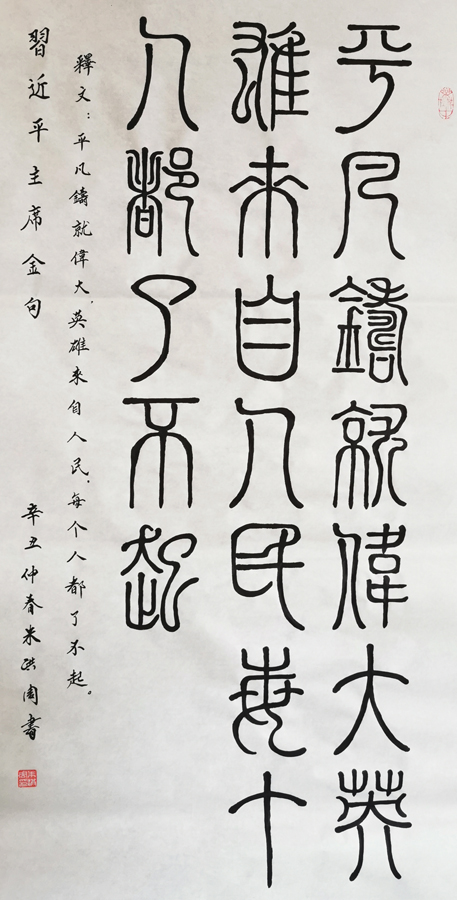 平凡鑄就偉大英
雄來自人民每个
人都了不起
釋文：平凡鑄就偉大，英雄来自人民。每个人都了不起。
習近平主席金句
辛丑仲春米洪周書